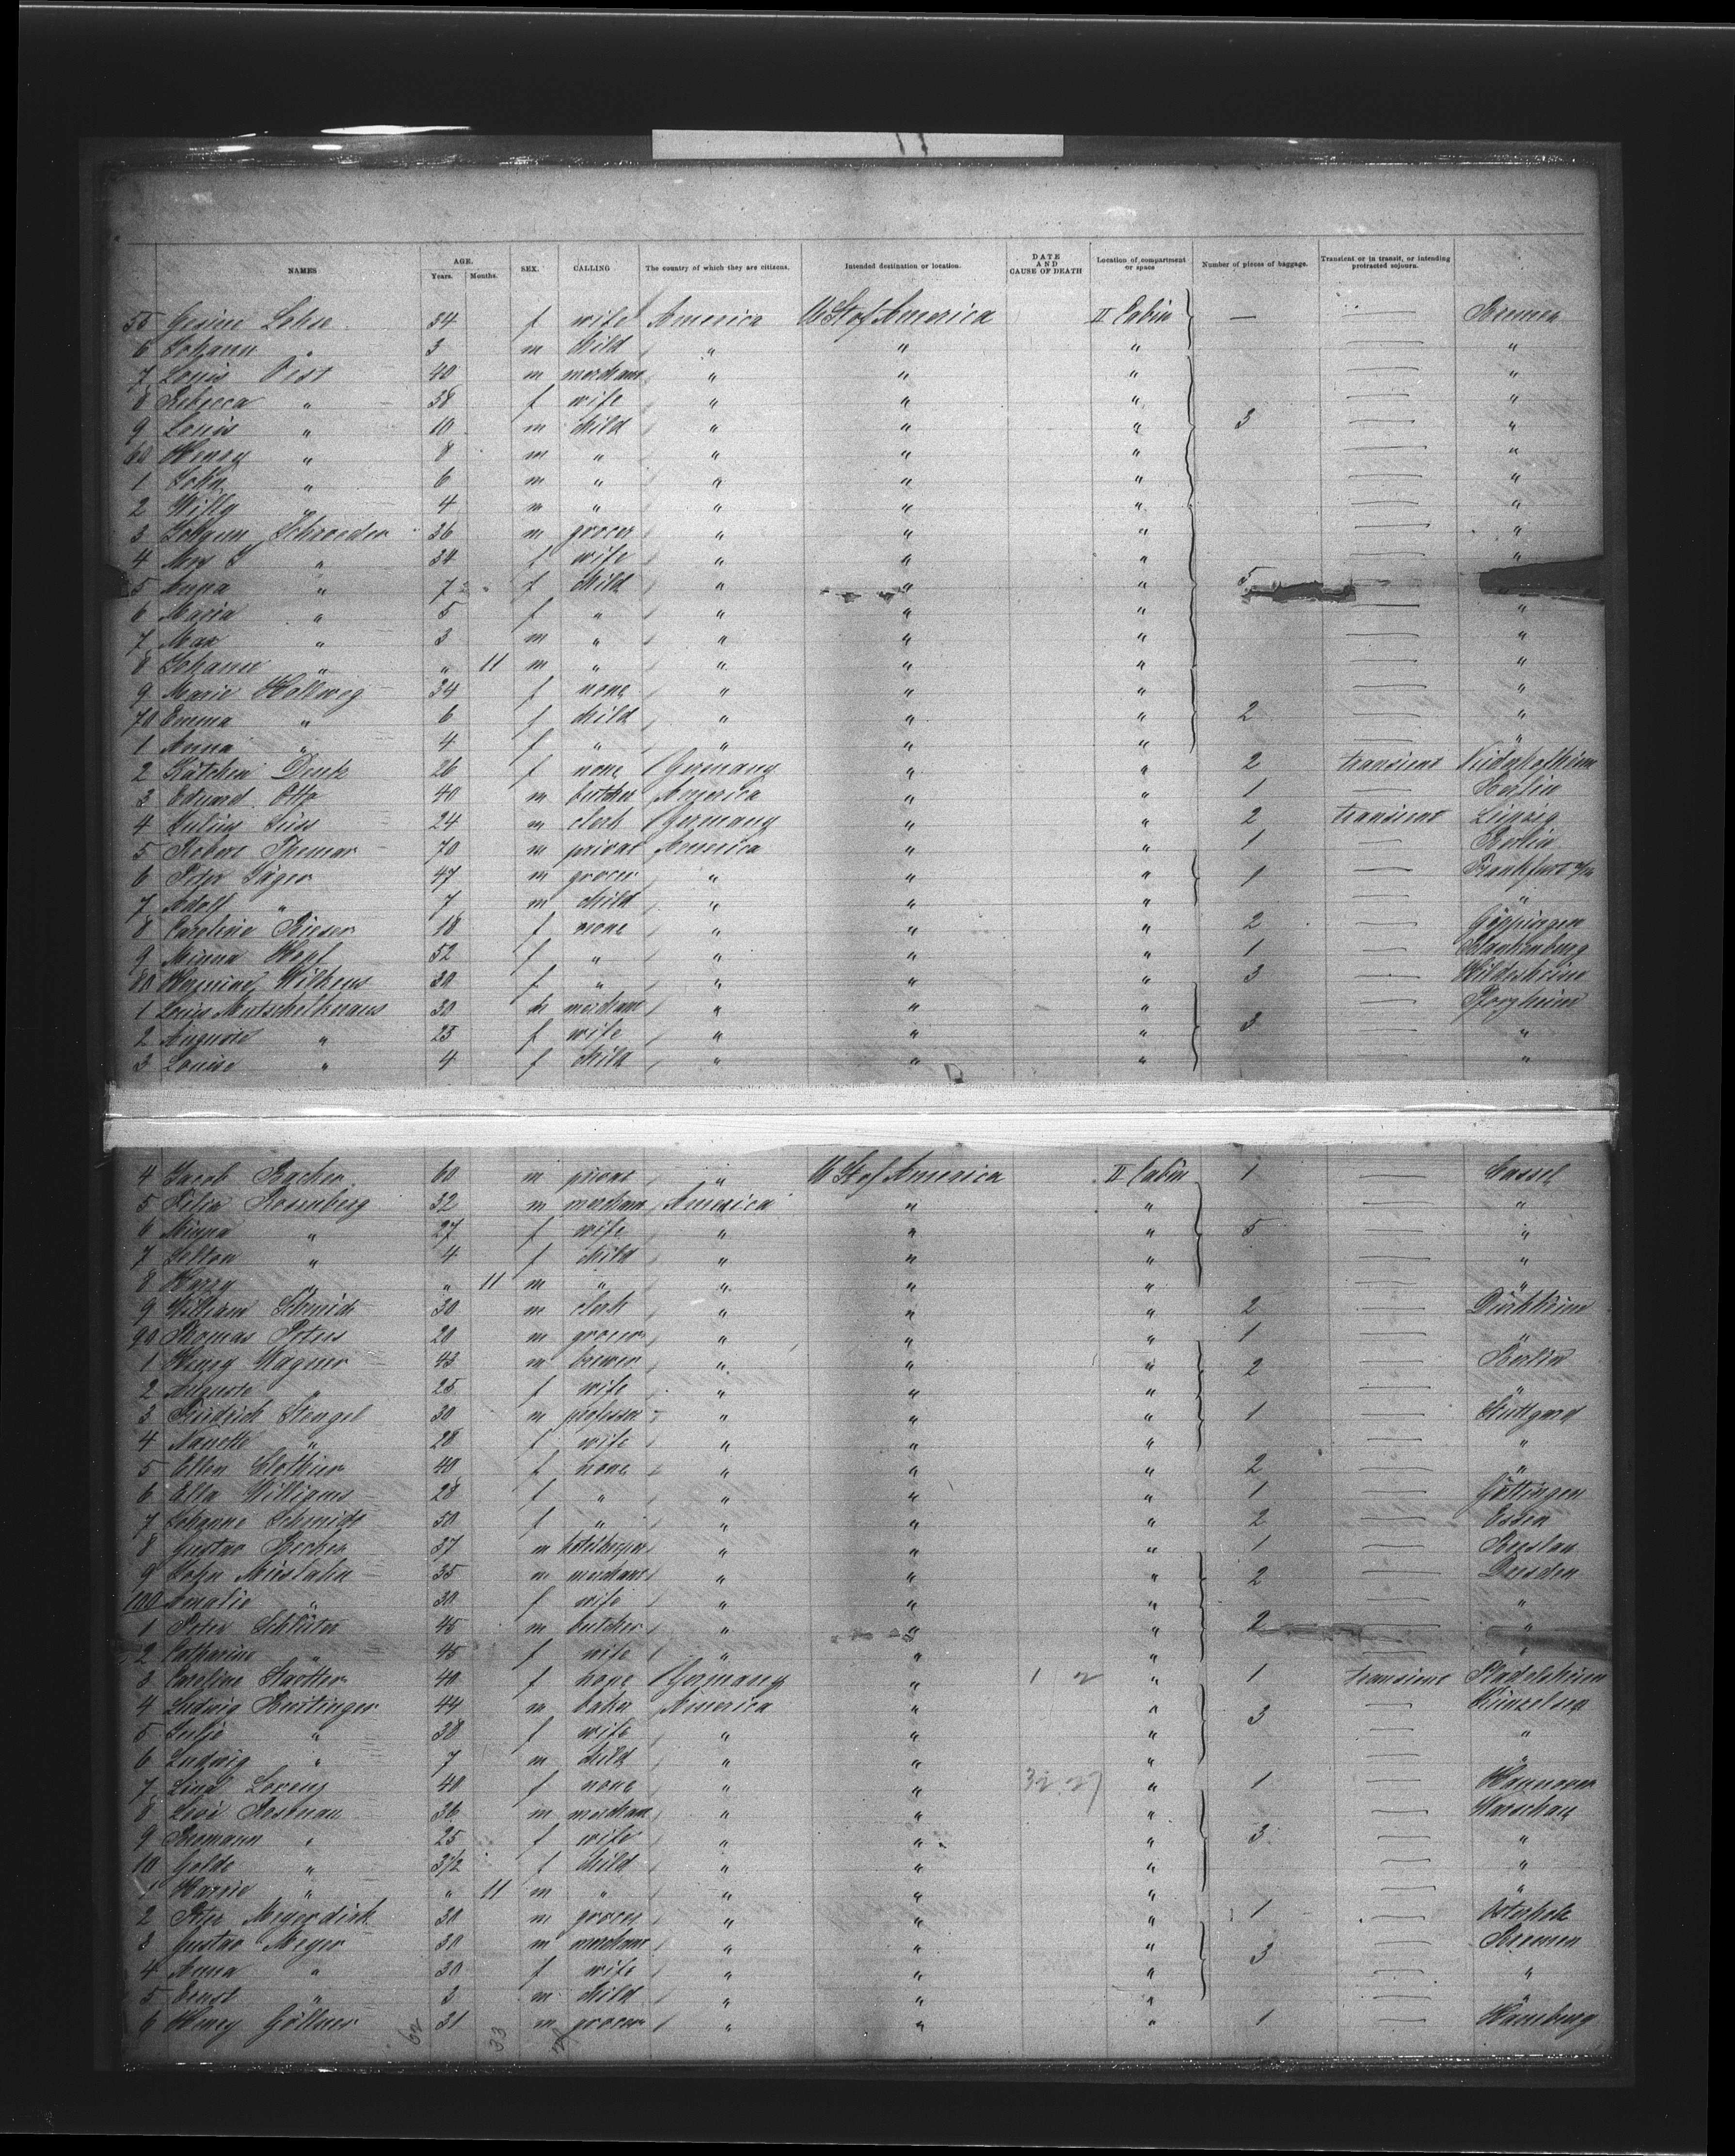 NAMES AGE. Years. Months. SEX. CALLING The country of which they are citizens. Intended destination or location. DATE AND CAUSE OF DEATH Location of compartment or space Number of pieces of baggage. Transient or in transit, or intending protracted sojourn.
55 Gesine Lohse 34 f wife America U St of America II Cabin — — Bremen
6 Johann " 3 m child " " " — "
7 Louis Oest 40 m merchant " " " — "
8 Rebecca " 38 f wife " " " — "
9 Louis " 10 m child " " " 3 — "
60 Henry " 8 m " " " " — "
1 John " 6 m " " " " — "
2 Willy " 4 m " " " " — "
3 Johann Schroeder 36 m grocer " " " — "
4 Mrs " 34 f wife " " " — "
5 Anna " 7 f child " " " 5 — "
6 Maria " 5 f " " " " — "
7 Max " 3 m " " " " — "
8 Johann " " 11 m " " " " — "
9 Marie Hollweg 34 f none " " " — "
70 Emma " 6 f child " " " 2 — "
1 Anna " 4 f " " " " — "
2 Kätchen Denk 26 f none Germany " " 2 transient
3 Eduard Otto 40 m butcher America " " 1 — Berlin
4 Julius Süss 24 m clerk Germany " " 2 transient Leipzig
5 Robert 70 m privat America " " 1 — Berlin
6 Peter Jäger 47 m grocer " " " 1 — Frankfurt a/m
7 Adolf " 7 m child " " " — "
8 Caroline Rieser 18 f none " " " 2 — Göppingen
9 Minna Hopf 52 f " " " " 1 — Blankenburg
80 Hermine Wilkens 30 f " " " " 3 — Hildesheim
1 Louis Mutschelknaus 30 m merchant " " " — Pforzheim
2 Auguste " 25 f wife " " " 3 — "
3 Louise " 4 f child " " " — "
4 Jacob Bacher 60 m privat " U St of America II Cabin 1 — Cassel
5 Felix Rosenberg 32 m merchant America " " — "
6 Minna " 27 f wife " " " 5 — "
7 " 4 f child " " " — "
8 Harry " " 11 m " " " " — "
9 William Schmidt 30 m clerk " " " 2 — Dürkheim
90 Thomas Peters 20 m grocer " " " 1 — "
1 Henry Wagner 43 m brewer " " " 2 — Berlin
2 Auguste " 25 f wife " " " — "
3 Friedrich Stengel 30 m professor " " " 1 — Stuttgard
4 Nanette " 28 f wife " " " — "
5 Ellen Clothier 40 f none " " " 2 — "
6 Ella Williams 28 f " " " " 1 — Göttingen
7 Johanne Schmidt 50 f " " " " 2 — Essen
8 Gustav Becker 37 m hotelkeeper " " " 1 — Breslau
9 John 35 m merchant " " " 2 — Dresden
100 Amalie " 30 f wife " " " — "
1 Peter Schlüter 45 m butcher " " " 2 — "
2 Catharine " 45 f wife " " " — "
3 Caroline 40 f none Germany " 1 2 " 1 transient
4 Ludwig 44 m baker America " " 3 — Künzelsau
5 Julie " 38 f wife " " " — "
6 Ludwig " 7 m child " " " — "
7 Lina Lorenz 40 f none " " " 1 — Hannover
8 Levi 36 m merchant " " " — Warschau
9 " 25 f wife " " " 3 — "
10 Golde " 3 1/2 f child " " " — "
1 Harris " " 11 m " " " " — "
2 Peter Meyerdirk 30 m grocer " " " 1 — Osterholz
3 Gustav Meyer 30 m merchant " " " 3 — Bremen
4 Anna " 30 f wife " " " — "
5 Ernst " 3 m child " " " — "
6 Henry Göllner 31 m grocer " " " 1 — Hamburg
62 33